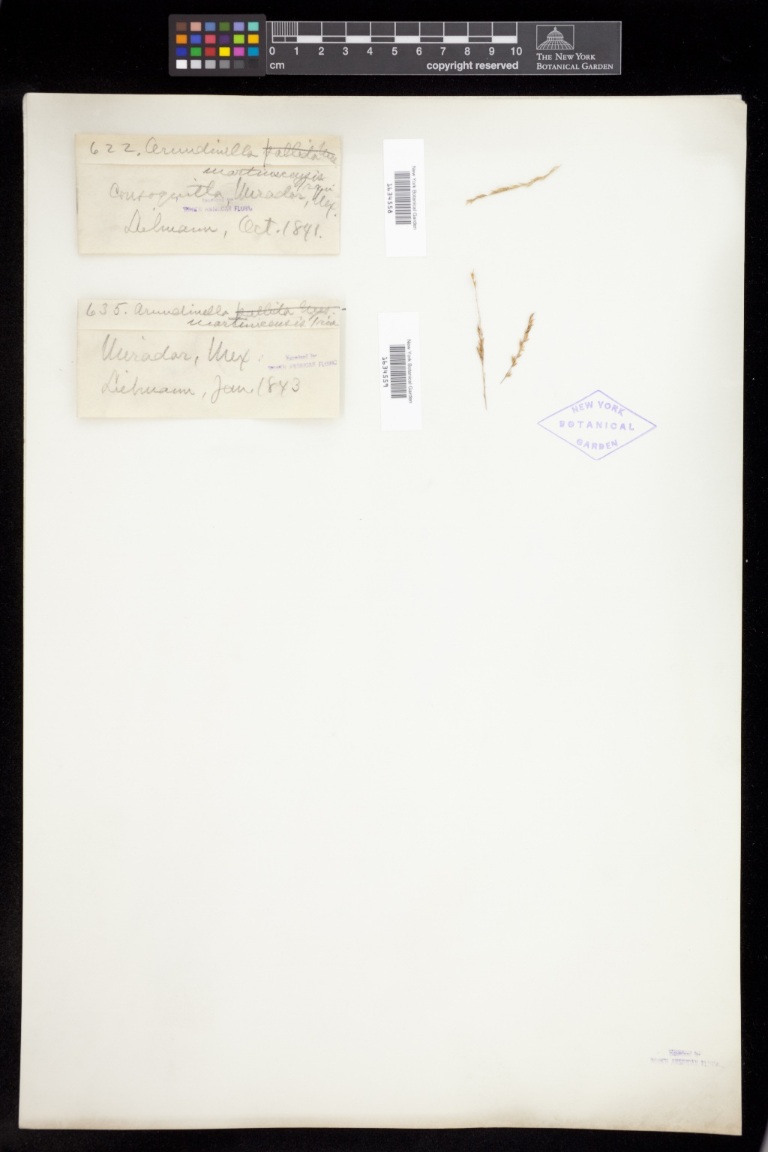 0 1 2 3 4 5 6 7 8 9 10
cm
copyright reserved
THE NEW YORK
BOTANICAL GARDEN
622. Arundinella pallida
martinicensis
Mirador, Mex.
Liebmann, Oct. 1841.
New York Botanical Garden
2634558
635. Arundinella pallida Nees.
martinicensis Trin
Mirador, Mex.
Liebmann, Jan 1843
New York Botanical Garden
2634559
NEW YORK
BOTANICAL
GARDEN